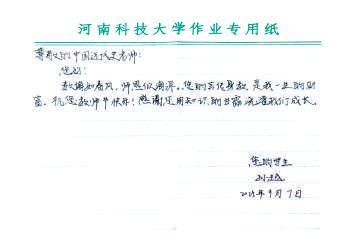 河南科技大学作业专用纸
尊敬的中国近代史老师:
您好!
教诲如春风,师恩似海深。您的言传身教,是我一生的财
富。祝您教师节快乐!感谢您用知识的甘霖浇灌我们成长。
您的学生
9月7日